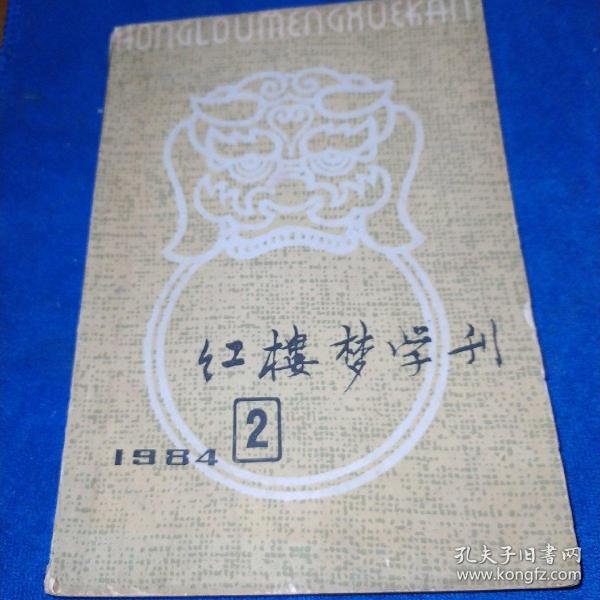 HONGLOUMENGXUEKAN
红樓梦学刊
2
1984
孔夫子旧书网
www.kongfz.com